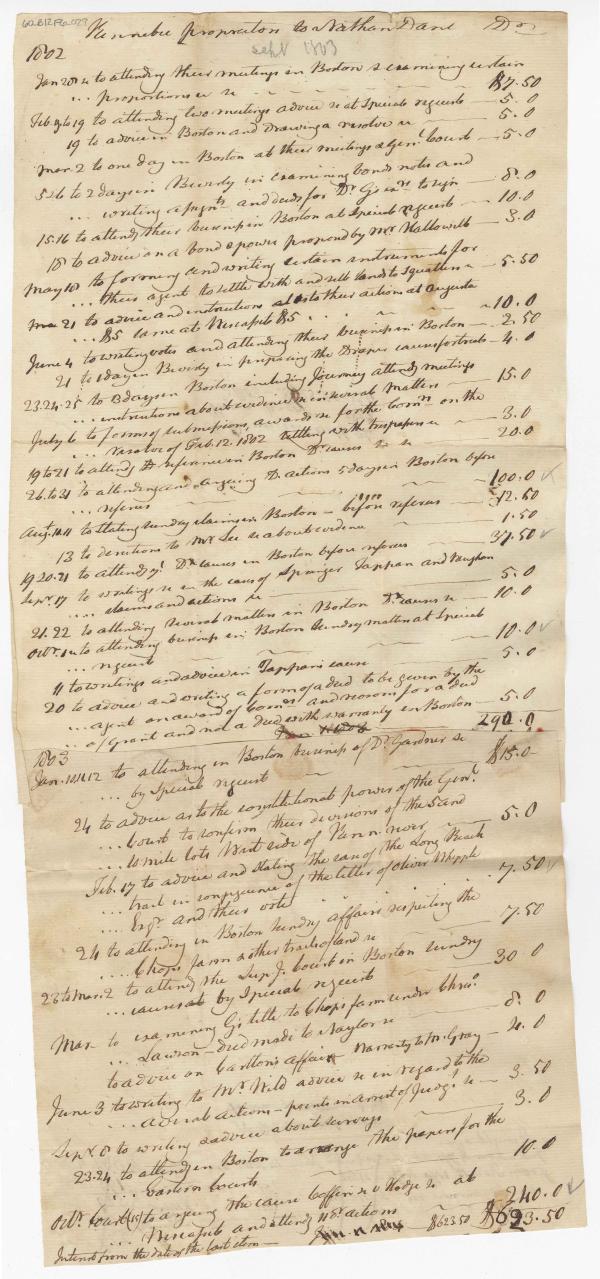 Kennebec Proprietors to Nathan Dane Dr
Sept 1803
1802
Jan 20 &c to attending their meetings in Boston & examining certain
... proportions &c $7.50
Feb to 19 to attending two meetings advice &c at Special requests 5.0
19 to advice in Boston and Drawing a resolve &c 5.0
Mar. 2 to one day in Boston at their meetings a Genl Court 5.0
5 & 6 to 2 days in Beverly in examining bonds notes and
... writing and deeds for Dr to sign 8.0
15.16 to attend their business in Boston at Special requests 10.0
18 to advice on a bond & power proposed by Mr Hallowell 3.0
May 10 to forming and writing certain instruments for
... their agent to settle with and sell lands to Squatters 5.50
21 to advice and instructions as to their actions at Augusta
... $5 same at Wiscasset $5 10.0
June 4 to writing votes and attending their business in Boston 2.50
21 to 1 day in Beverly in preparing the Draper causes for trial 4.0
23.24.25 to 3 days in Boston including Journey attendg meetings
... instructions about evidence &c in several matters 15.0
July 6 to forms of submissions, awards &c for the Comrs on the
... resolve of Feb. 12. 1802 settling with trespassers &c 3.0
19 to 21 to attend Dr referees in Boston Dr causes &c 20.0
26 to 31 to attending and arguing Dr actions 5 days in Boston before
... referees 100.0
Augt 10.11 to stating sundry claims in Boston before referees 12.50
13 to directions to Mr Lee &c about evidence 1.50
19 20.21 to attending Dr causes in Boston before referees 37.50
Sepr 17 to writings &c in the cases of Springer Tappan and Vaughan
... claims and actions &c 5.0
21.22 to attending several matters in Boston Dr causes &c 10.0
Octr to attending business in Boston sundry matters at Special
... request 10.0
11 to writings and advice in Tappan's cause 5.0
20 to advice and writing a form of a deed to be given by the
... agent on award of Comrs and reasons for a deed
.. of Grant and not a deed with warranty in Boston 5.0
290.0
1803
Jan. 10.11.12 to attending in Boston business of Dr Gardner &c
... by Special request $15.0
24 to advice as to the constitutional powers of the Genl
... Court to confirm their divisions of the land
... 10 mile lots West side of Kenn. river 5.0
Feb. 17 to advice and stating the case of the Long Reach
... tract in consequence of the letter of Oliver Whipple
... Esqr and their vote 7.50
24 to attending in Boston sundry affairs respecting the
... Chops farm & other tracts of land &c 7.50
28 to Mar. 2 to attend the Sup J. Court in Boston sundry
... causes &c by Special request 30 0
Mar to examining G's title to Chops farm under Chrisr
... Lawson - deed made to Naylor &c 8.0
to advice on Carlton's affairs Warranty to Mr. Gray 4.0
June 3 to writing to Mr Wild advice &c in regard to the
... several actions - points in arrest of Judgt &c 3.50
Sepr 8 to writing & advice about surveys 3.0
23.24 to attend in Boston to arrange the papers for the
... Eastern Courts 10.0
Octr Court (15) to arguing the cause Coffin &c v Hodge &c at
... Wiscasset and attendg 11 Sd actions 240.0
$623.50 $623.50
Interest from the date of the last item